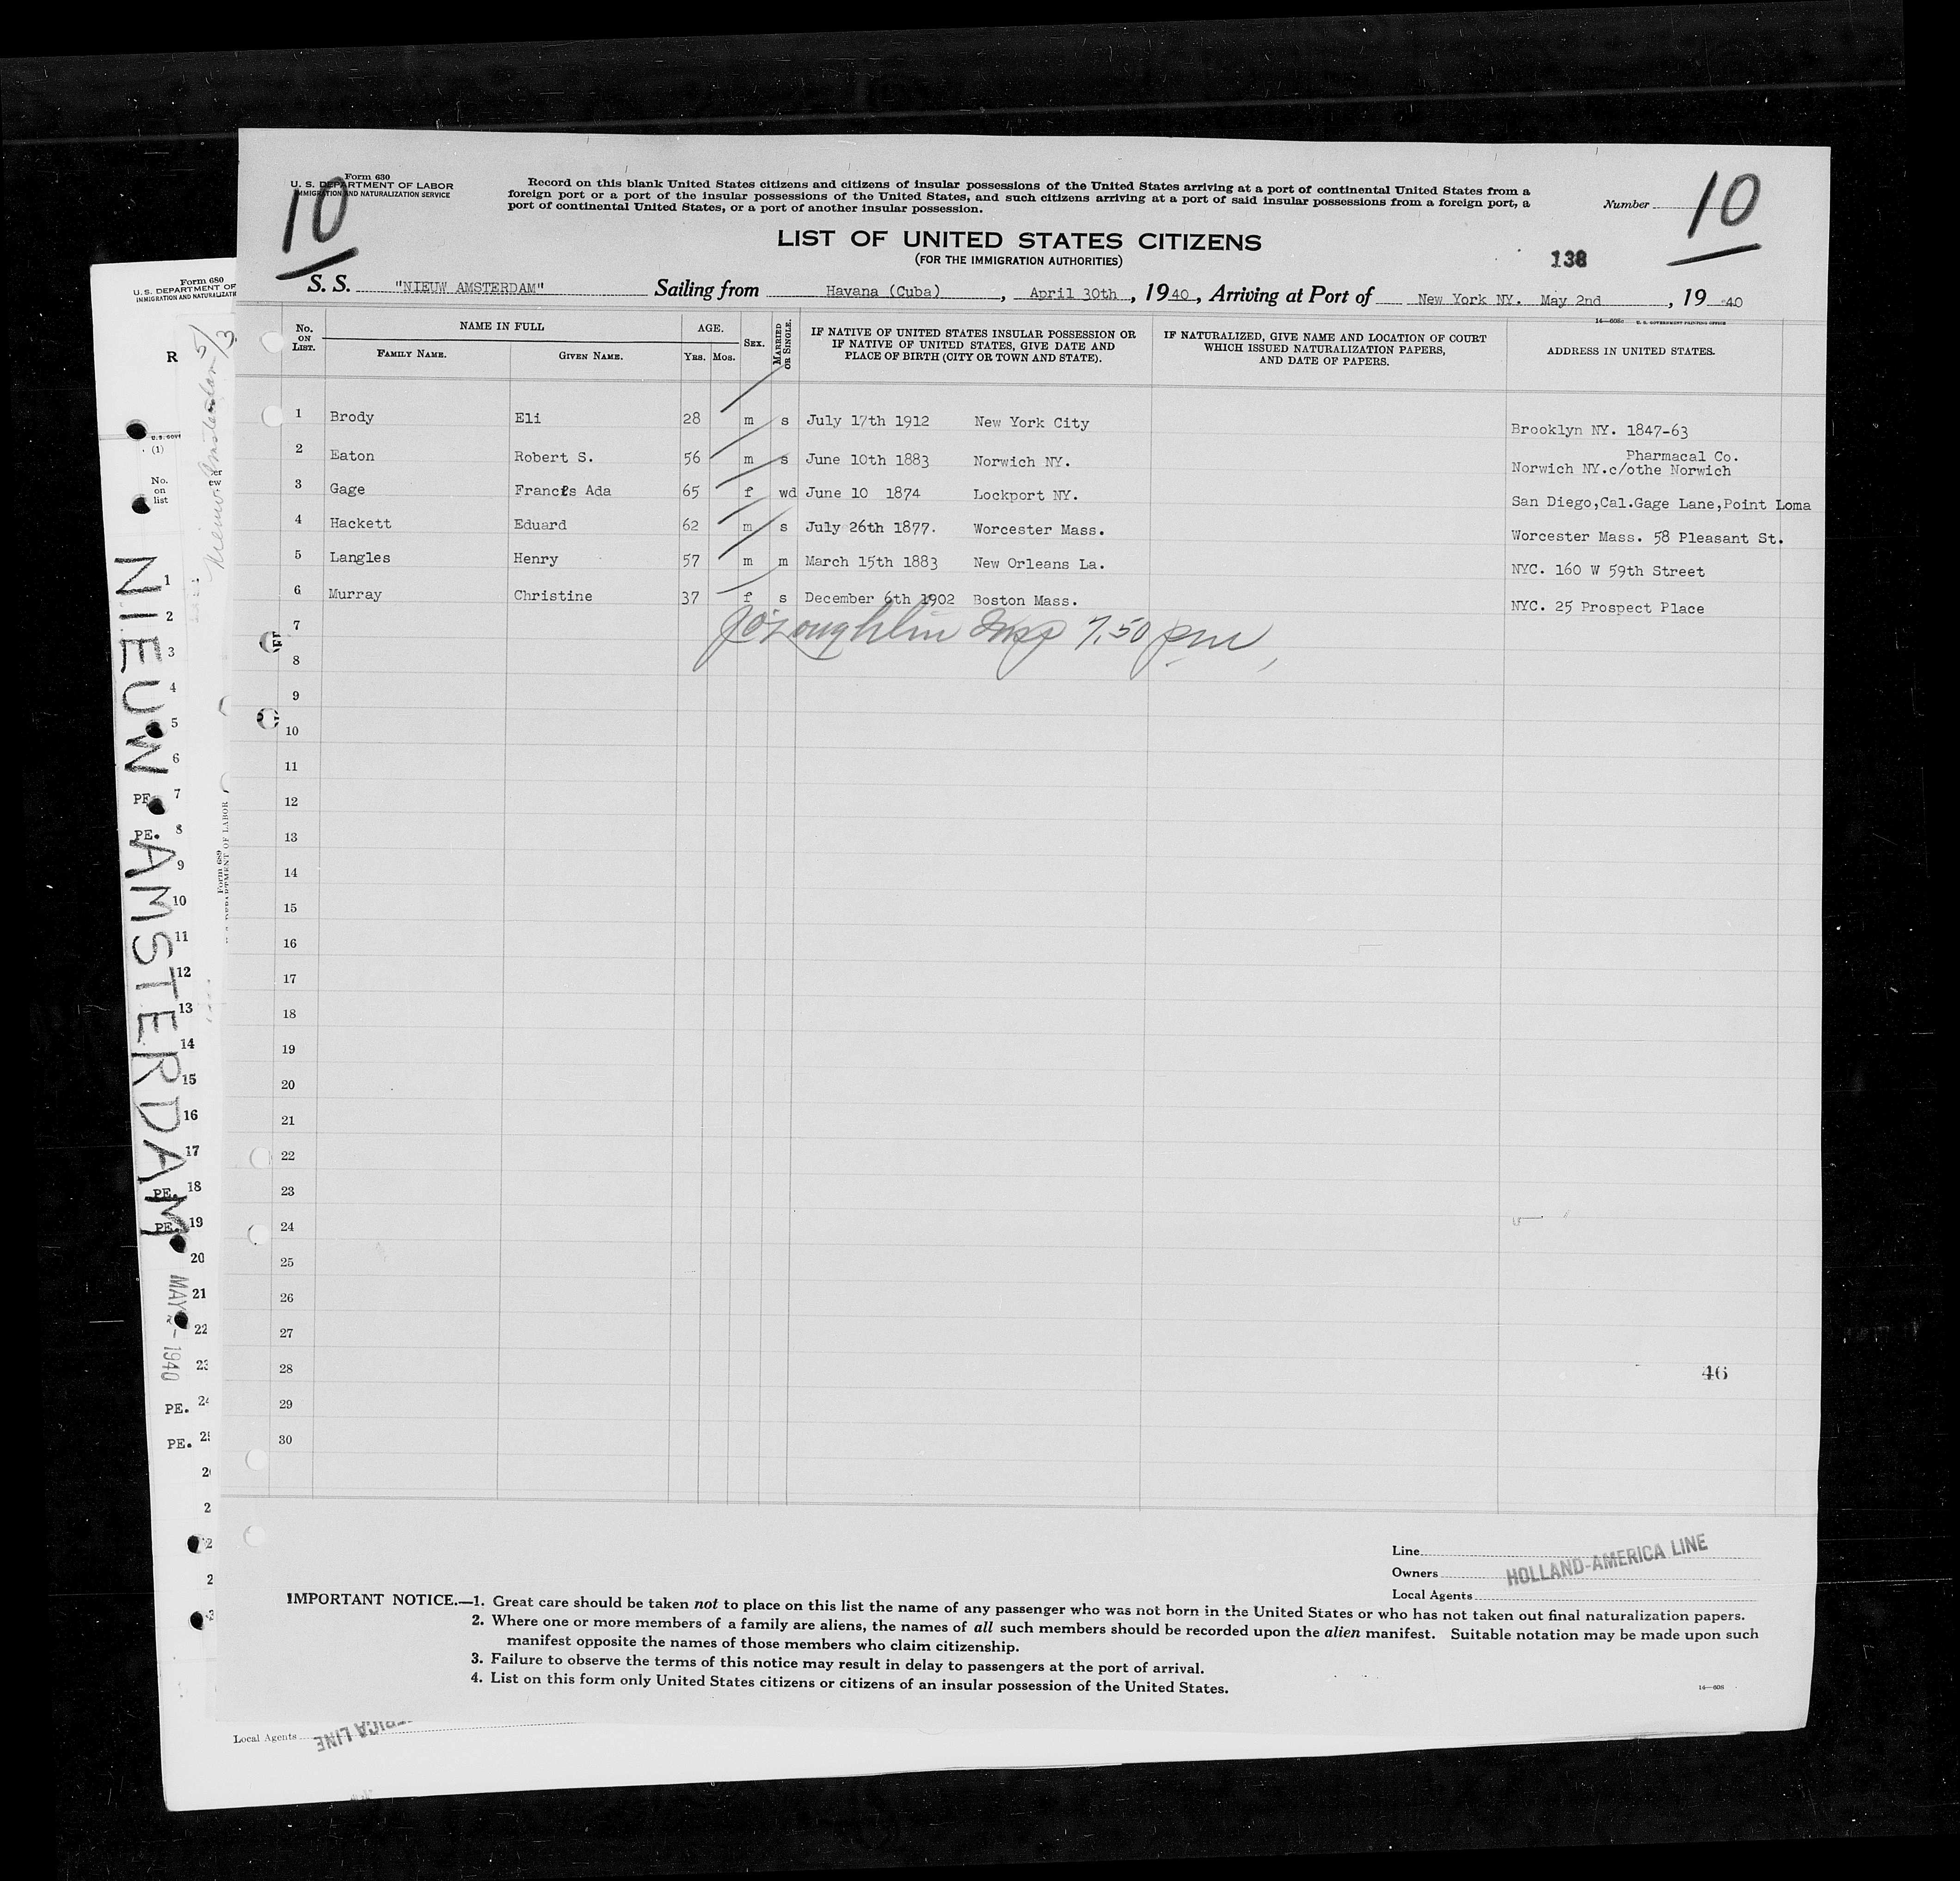 Form 630
U. S. DEPARTMENT OF LABOR
IMMIGRATION AND NATURALIZATION SERVICE
10
Record on this blank United States citizens and citizens of insular possessions of the United States arriving at a port of continental United States from a
foreign port or a port of the insular possessions of the United States, and such citizens arriving at a port of said insular possessions from a foreign port, a
port of continental United States, or a port of another insular possession.
Number 10
LIST OF UNITED STATES CITIZENS
(FOR THE IMMIGRATION AUTHORITIES)
138
S. S. "NIEUW AMSTERDAM" Sailing from Havana (Cuba), April 30th, 1940, Arriving at Port of New York NY. May 2nd, 19 40
14—608c U. S. GOVERNMENT PRINTING OFFICE
No. ON LIST. NAME IN FULL FAMILY NAME. GIVEN NAME. AGE. YRS. MOS. SEX. MARRIED OR SINGLE. IF NATIVE OF UNITED STATES INSULAR POSSESSION OR IF NATIVE OF UNITED STATES, GIVE DATE AND PLACE OF BIRTH (CITY OR TOWN AND STATE). IF NATURALIZED, GIVE NAME AND LOCATION OF COURT WHICH ISSUED NATURALIZATION PAPERS, AND DATE OF PAPERS. ADDRESS IN UNITED STATES.
1 Brody Eli 28 m s July 17th 1912 New York City Brooklyn NY. 1847-63
2 Eaton Robert S. 56 m s June 10th 1883 Norwich NY. Pharmacal Co. Norwich NY.c/othe Norwich
3 Gage Francis Ada 65 f wd June 10 1874 Lockport NY. San Diego,Cal.Gage Lane,Point Loma
4 Hackett Eduard 62 m s July 26th 1877. Worcester Mass. Worcester Mass. 58 Pleasant St.
5 Langles Henry 57 m m March 15th 1883 New Orleans La. NYC. 160 W 59th Street
6 Murray Christine 37 f s December 6th 1902 Boston Mass. NYC. 25 Prospect Place
7 JO'Loughlin Insp 7,50 pm
8
9
10
11
12
13
14
15
16
17
18
19
20
21
22
23
24
25
26
27
28 46
29
30
Line
Owners HOLLAND-AMERICA LINE
Local Agents
IMPORTANT NOTICE.—1. Great care should be taken not to place on this list the name of any passenger who was not born in the United States or who has not taken out final naturalization papers.
2. Where one or more members of a family are aliens, the names of all such members should be recorded upon the alien manifest. Suitable notation may be made upon such
manifest opposite the names of those members who claim citizenship.
3. Failure to observe the terms of this notice may result in delay to passengers at the port of arrival.
4. List on this form only United States citizens or citizens of an insular possession of the United States.
14—608
Form 680
U. S. DEPARTMENT OF
(1)
No.
on
list
NIEUW AMSTERDAM
MAY 2 - 1940
1
2
3
4
5
6
PE. 7
PE. 8
9
10
11
12
13
14
15
16
17
PE. 18
PE. 19
20
21
22
PE.
PE.
Form 689
U. S. DEPARTMENT OF LABOR
Local Agents